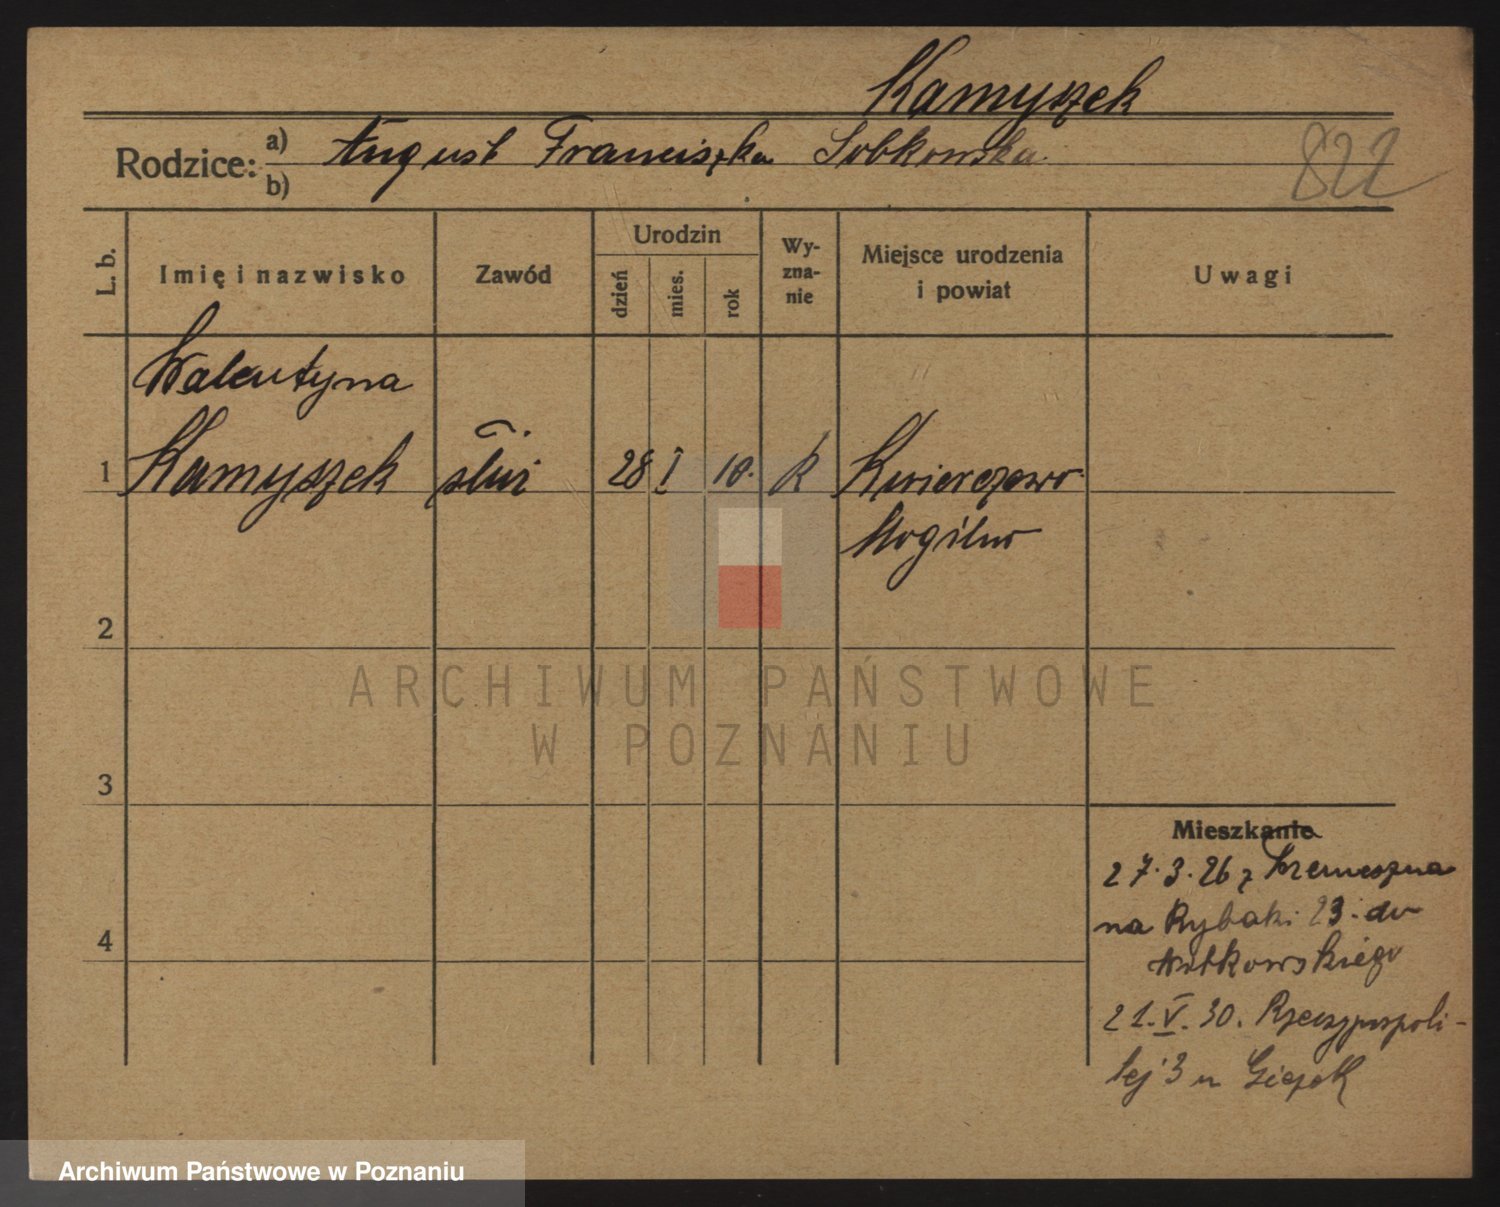 Kamyszek
Rodzice: a) August Franciszka Sobkowska
b)
822
L. b.
Imię i nazwisko
Zawód
Urodzin
dzień
mies.
rok
Wy-
zna-
nie
Miejsce urodzenia
i powiat
Uwagi
Walentyna
1 Kamyszek służ 28 I 10. R Kwierczewo
Mogilno
2
3
4
Mieszkanie
27.3.26 z Trzemeszna
na Rybaki 23. do
Witkowskiego
21.V.30. Rzeczypospoli-
tej 3 u
ARCHIWUM PAŃSTWOWE
W POZNANIU
Archiwum Państwowe w Poznaniu